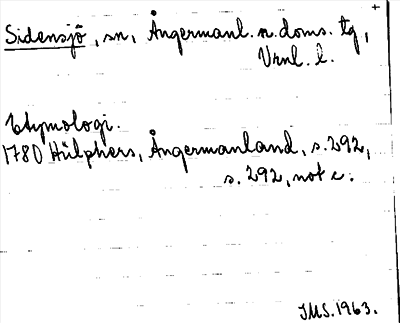 Sidensjö, sn, Ångermanl. n. doms. tg,
Vrnl. l.
Etymologi.
1780 Hülphers, Ångermanland, s. 292,
s. 292, not c.
JMS. 1963.